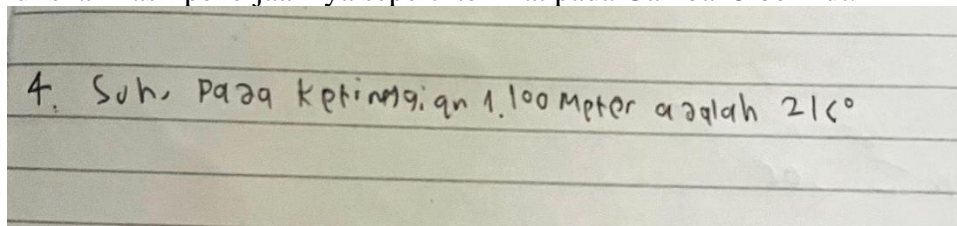 4. Suhu pada ketinggian 1.100 Meter adalah 21c°